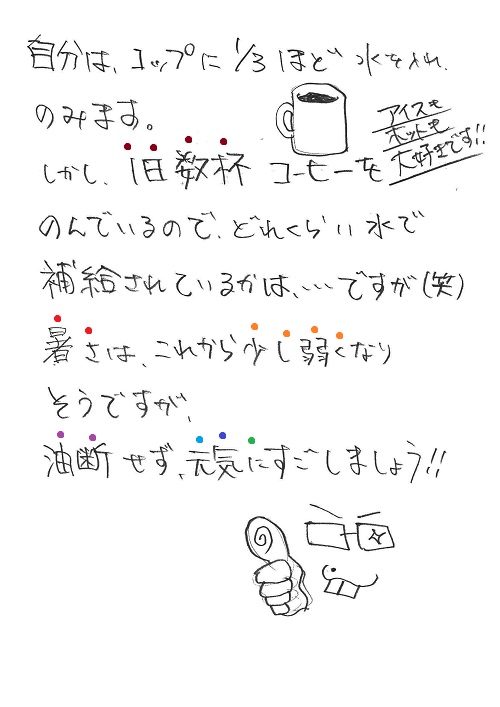 自分は、コップに1/3ほど水を入れ、
のみます。
アイスも
ホットも
大好きです!!
しかし、1日数杯コーヒーを
のんでいるので、どれくらい水で
補給されているかは、…ですが(笑)
暑さは、これから少し弱くなり
そうですが、
油断せず、元気にすごしましょう!!